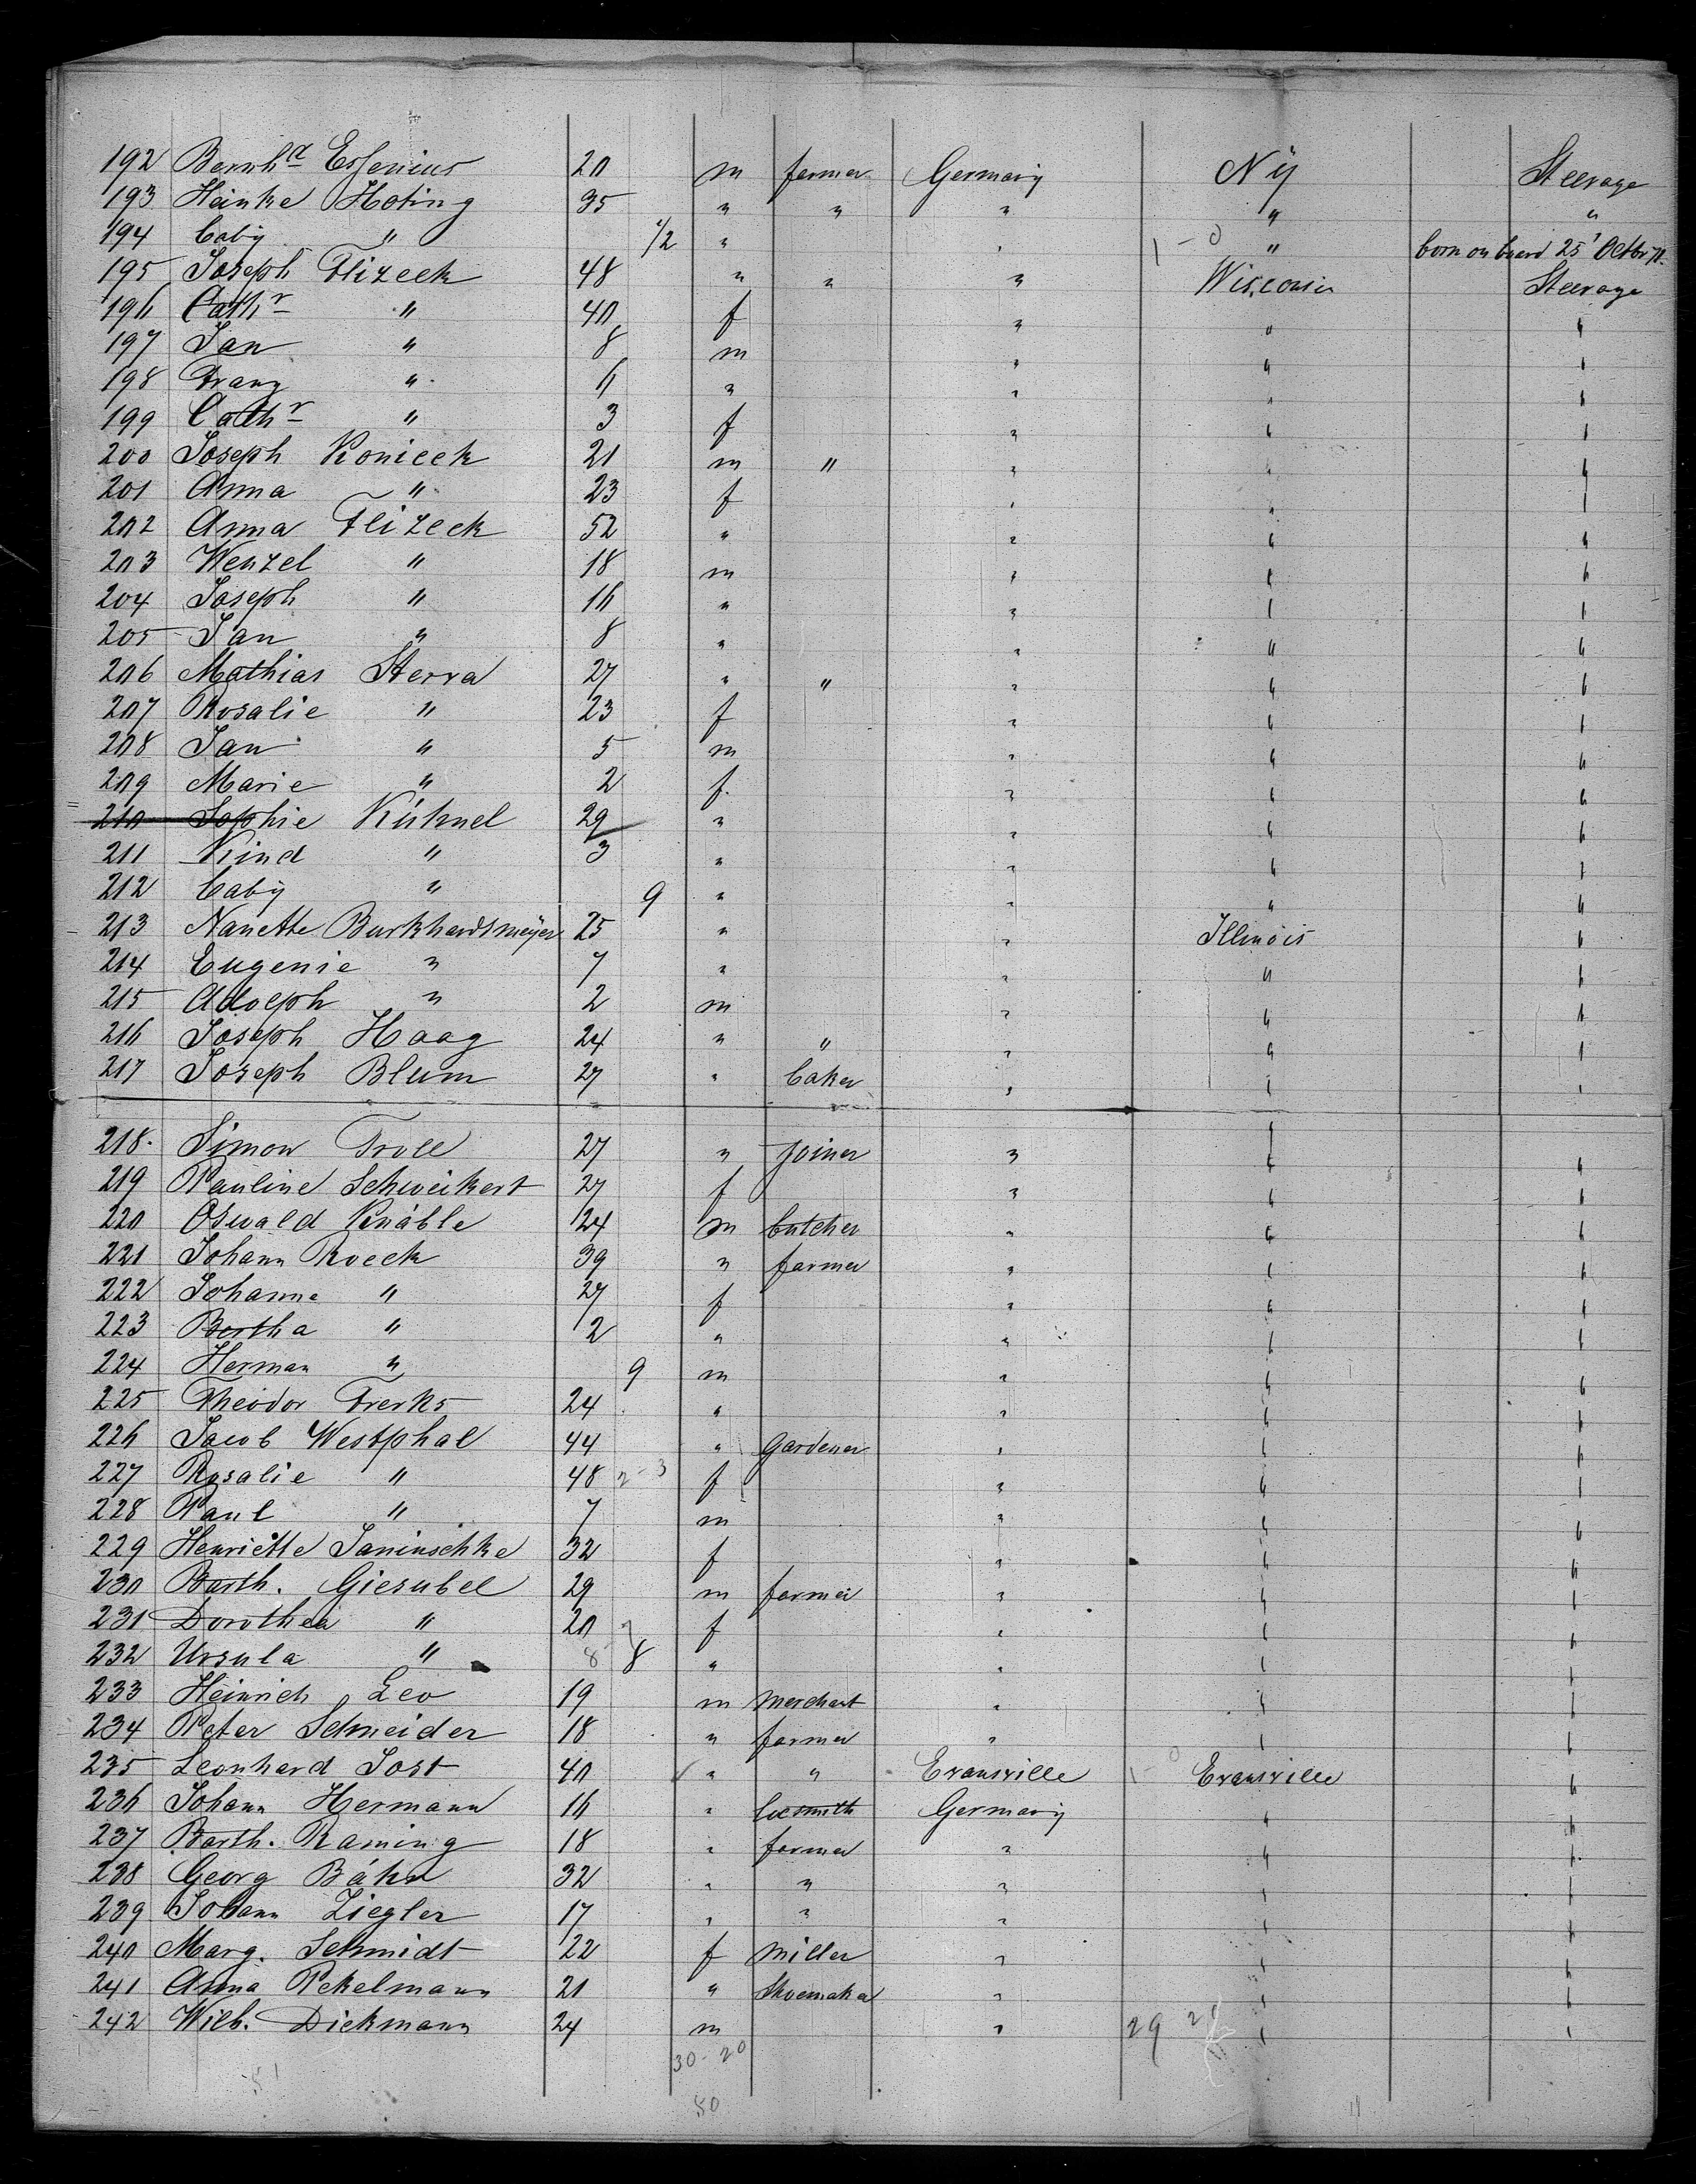 192 Bernhd Essenius 20 m farmer Germany Ny Steerage
193 Heinke Hoting 35 " " " " "
194 baby " 1/2 " " 1 - 0 " born on board 25t Octbr
195 Joseph Flizeck 48 " " " Wisconsin Steerage
196 Cathr " 40 f " " "
197 Jan " 8 m " " "
198 Franz " 6 " " " "
199 Cathr " 3 f " " "
200 Joseph Konicek 21 m " " " "
201 Anna " 23 f " " "
202 Anna Flizeck 52 " " " "
203 Wenzel " 18 m " " "
204 Joseph " 16 " " " "
205 Jan " 8 " " " "
206 Mathias Sterra 27 " " " " "
207 Rosalie " 23 f " " "
208 Jan " 5 m " " "
209 Marie " 2 f. " " "
210 Sophie Kühnel 29 " " " "
211 Kind " 3 " " " "
212 baby " 9 " " " "
213 Nanette Burkhardsmeyer 25 " " Illinois "
214 Eugenie " 7 " " " "
215 Adolph " 2 m " " "
216 Joseph Haag 24 " " " " "
217 Joseph Blum 27 " baker " " "
218. Simon Troll 27 " joiner " " "
219 Pauline Schweikert 27 f " " "
220 Oswald Knäble 24 m butcher " " "
221 Johann Roeck 39 " farmer " " "
222 Johanne " 27 f " " "
223 Bertha " 2 " " " "
224 Herman " 9 m " " "
225 Theodor Frerks 24 " " " "
226 Jacob Westphal 44 " gardener " " "
227 Rosalie " 48 2-3 f " " "
228 Paul " 7 m " " "
229 Henriette Janinschke 32 f " " "
230 Barth. Giesubel 29 m farmer " " "
231 Dorothea " 20 f " " "
232 Ursula " 8 8 " " " "
233 Heinrich Leo 19 m merchant " " "
234 Peter Schneider 18 " farmer " " "
235 Leonhard Jost 40 " " Evansville 1 - 0 Evansville "
236 Johann Hermann 16 " locsmith Germany " "
237 Barth. Raming 18 " farmer " " "
238 Georg Bähr 32 " " " " "
239 Johann Ziegler 17 " " " " "
240 Marg. Schmidt 22 f miller " " "
241 Anna Pekelmann 21 " Shoemaker " " "
242 Wilh. Dickmann 24 m " 29 " "
30-20
51 50 11